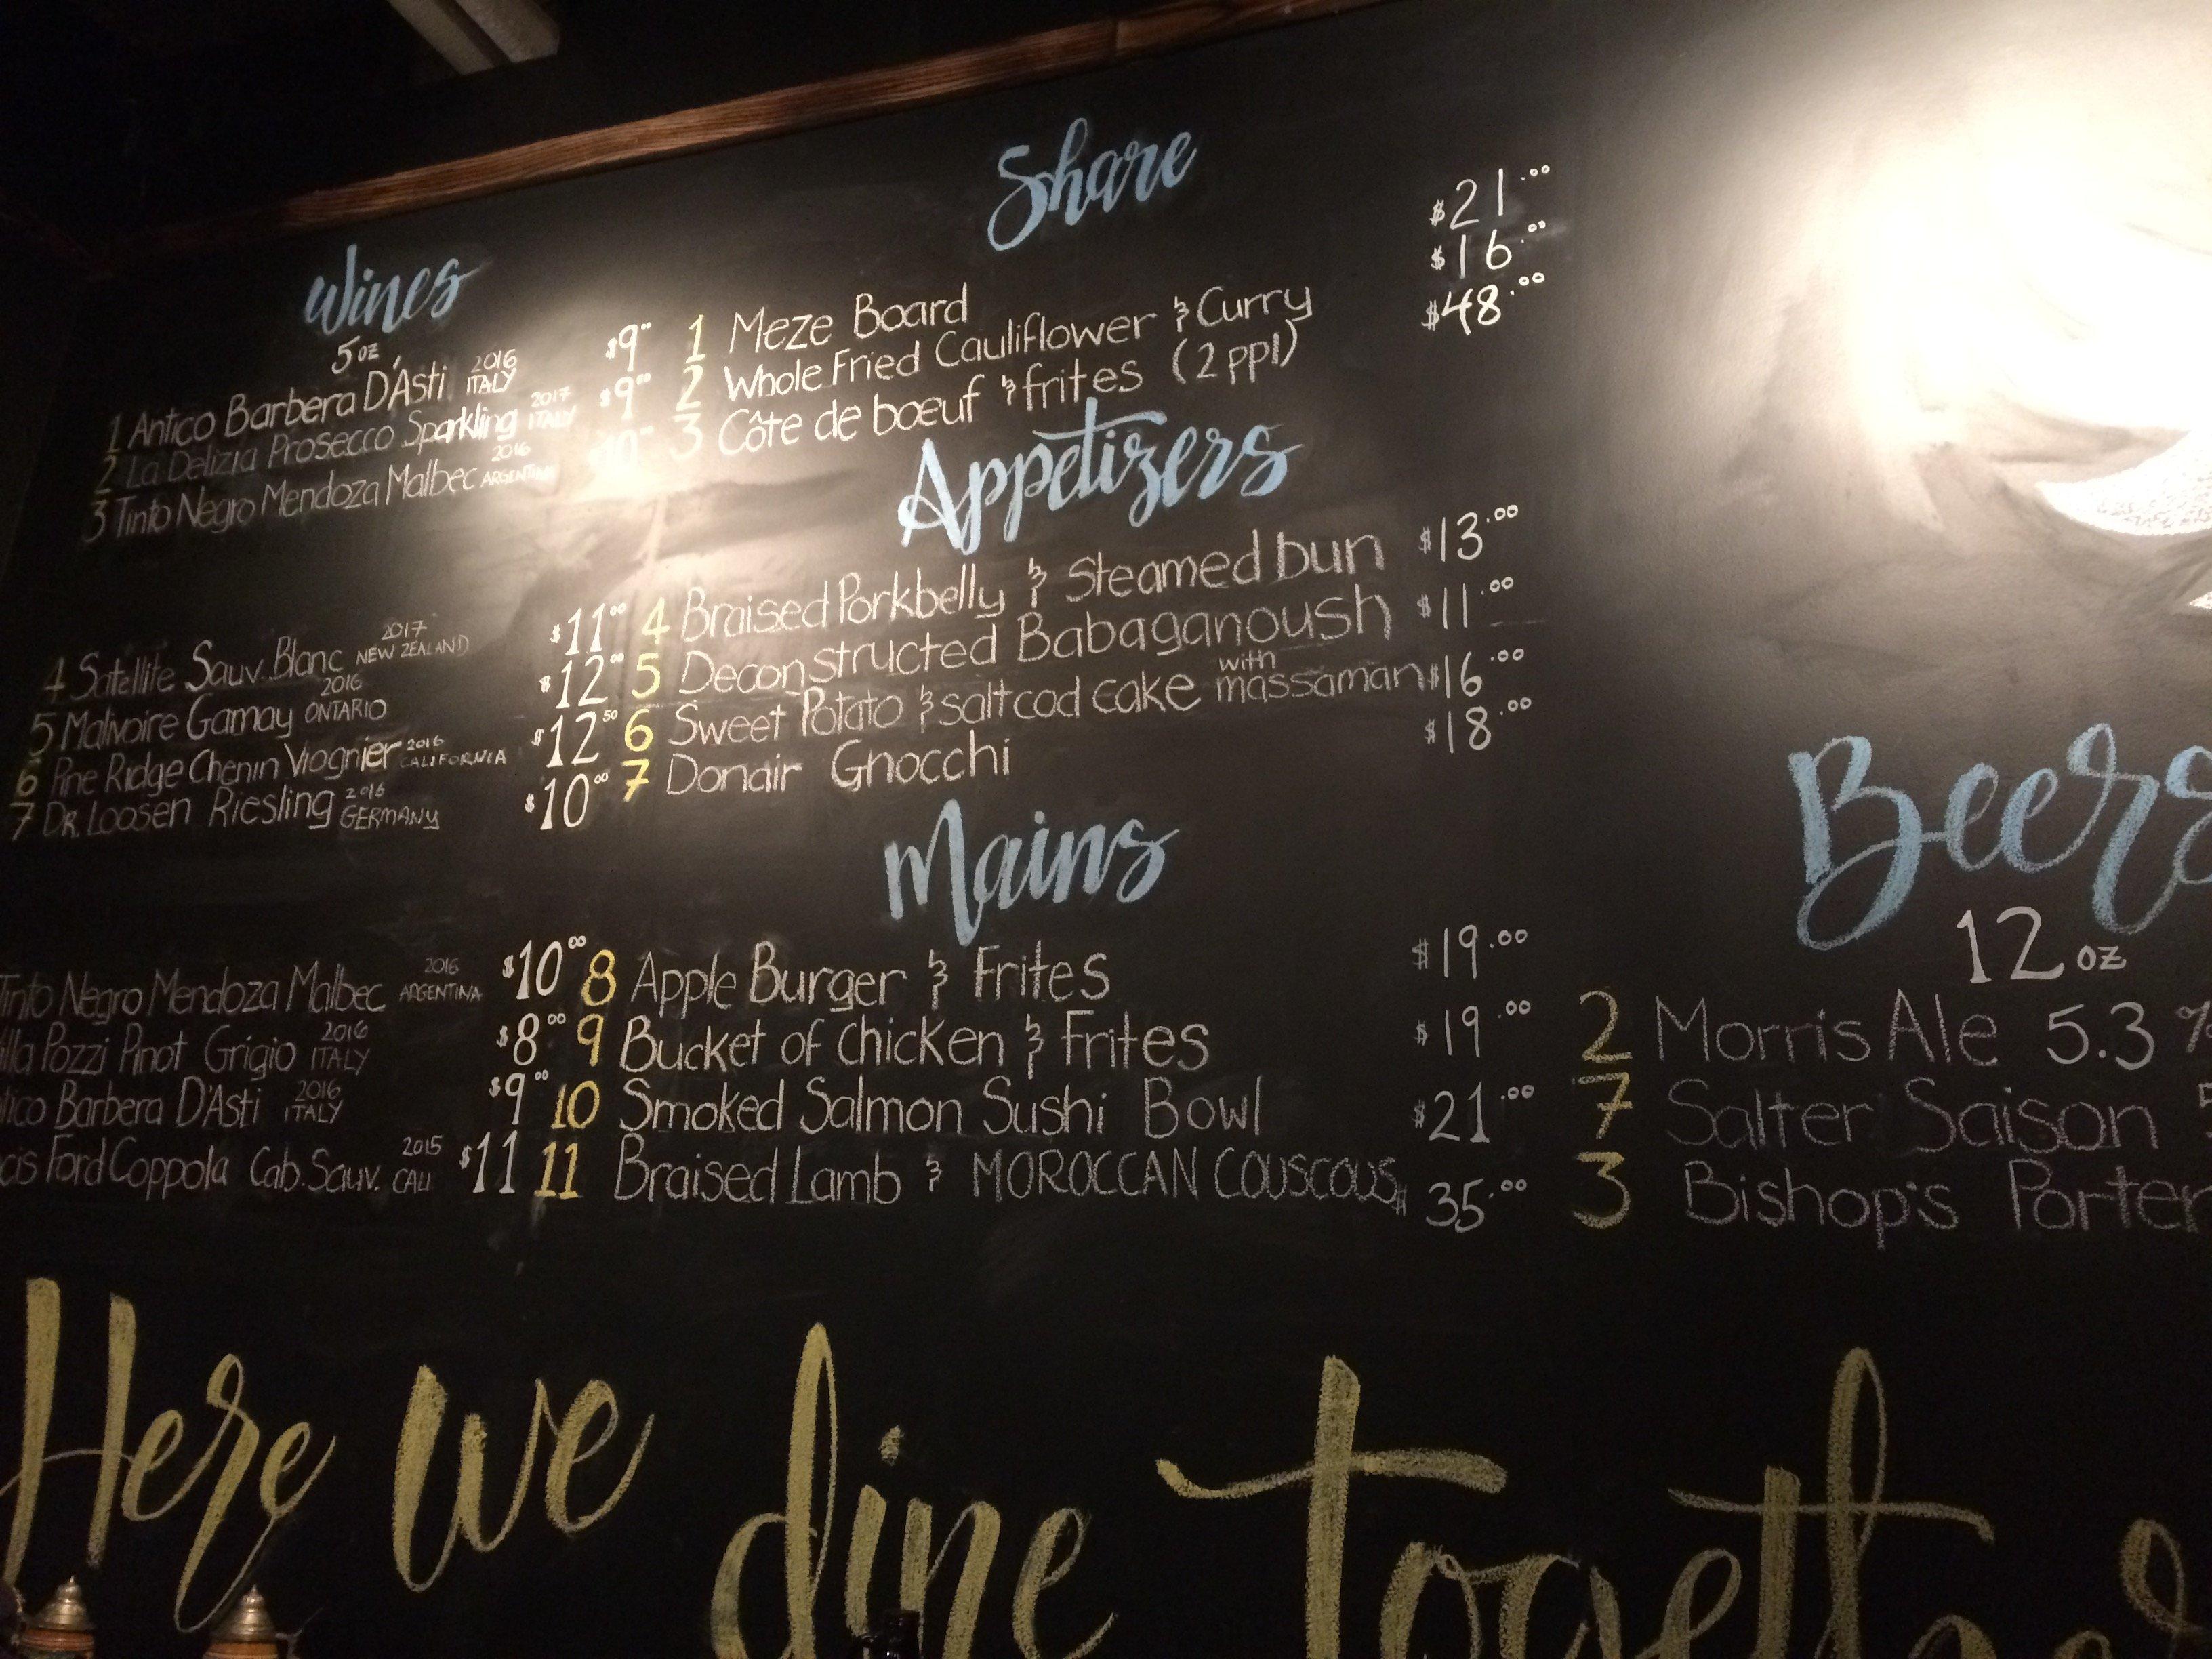 Wines
5 oz
1 Antico Barbera D'Asti 2016 ITALY $9.00
2 La Delizia Prosecco Sparkling 2017 ITALY $9.00
3 Tinto Negro Mendoza Malbec 2016 ARGENTINA
4 Satellite Sauv. Blanc 2017 NEW ZEALAND $11.00
5 Malivoire Gamay 2016 ONTARIO $12.00
6 Pine Ridge Chenin Viognier 2016 CALIFORNIA $12.50
7 DR. LOOSEN Riesling 2016 GERMANY $10.00
Tinto Negro Mendoza Malbec 2016 ARGENTINA $10.00
illa Pozzi Pinot Grigio 2016 ITALY $8.00
tico Barbera D'Asti 2016 ITALY $9.00
cis Ford Coppola Cab. Sauv. 2015 CALI $11
Share
1 Meze Board $21.00
2 Whole Fried Cauliflower & Curry $16.00
3 Côte de bœuf & frites (2 ppl) $48.00
Appetizers
4 Braised Porkbelly & Steamed bun $13.00
5 Deconstructed Babaganoush $11.00
6 Sweet Potato & salt cod cake with massaman $16.00
7 Donair Gnocchi $18.00
Mains
8 Apple Burger & Frites $19.00
9 Bucket of chicken & Frites $19.00
10 Smoked Salmon Sushi Bowl $21.00
11 Braised Lamb & MOROCCAN COUSCOUS $35.00
Beers
12 oz
2 Morris Ale 5.3 %
7 Salter Saison
3 Bishop's Porter
Here we dine together